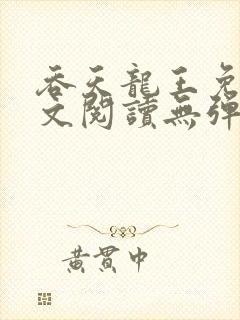 吞天龍王免
文閱讀無彈
黃貫中